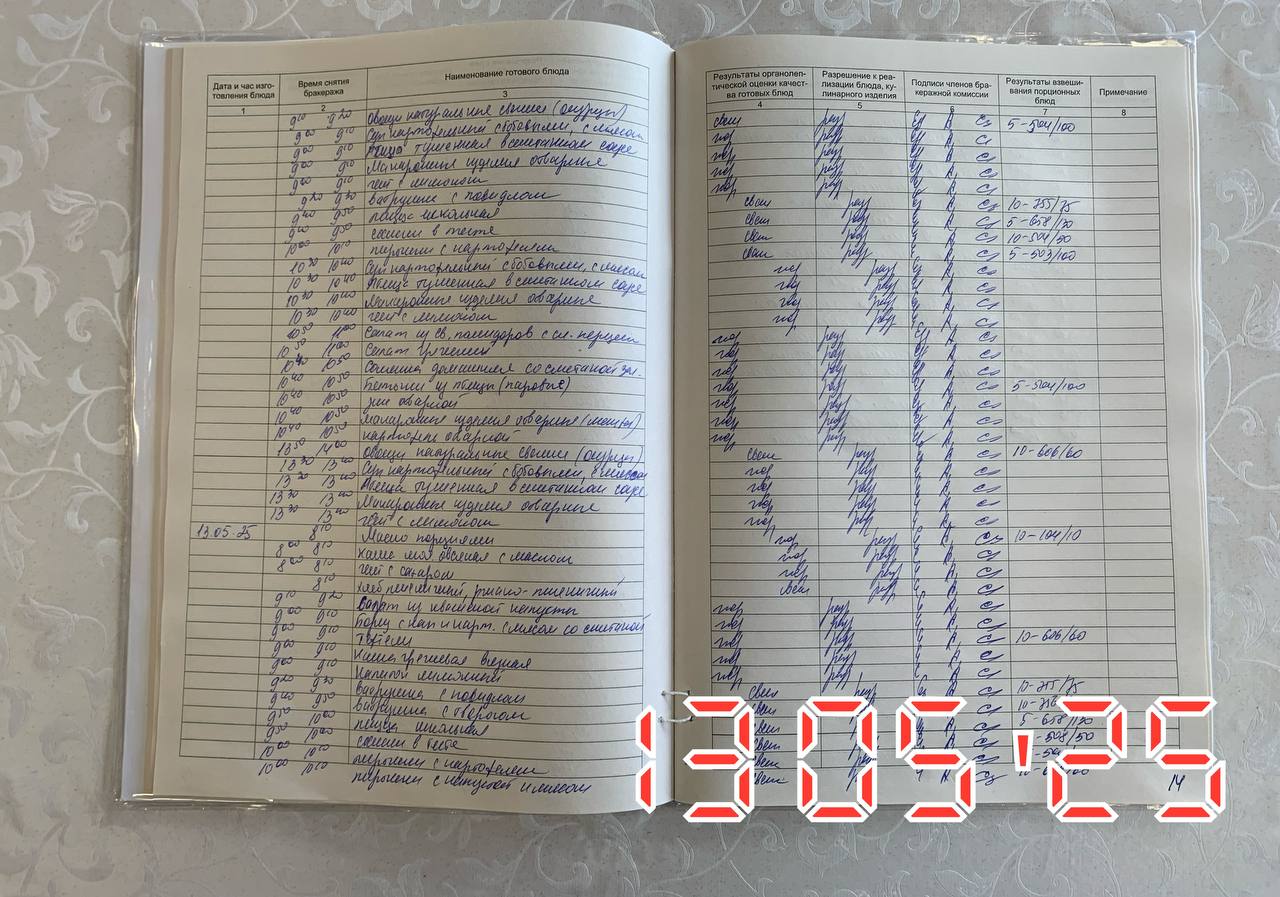 Дата и час изготовления блюда
Время снятия бракеража
Наименование готового блюда
Результаты органолептической оценки качества готовых блюд
Разрешение к реализации блюда, кулинарного изделия
Подписи членов бракеражной комиссии
Результаты взвешивания порционных блюд
Примечание
1 2 3 4 5 6 7 8
9 10 9 20 Овощи натуральные свежие (огурцы) свеж разр 5-504/100
9 00 9 10 Суп картофельный с бобовыми, с мясом гор разр
9 00 9 10 Птица тушенная в сметанном соусе гор разр
9 00 9 10 Макаронные изделия отварные гор разр
9 00 9 10 чай с лимоном гор разр
9 20 9 30 ватрушка с повидлом свеж разр 10-755/75
9 40 9 50 пицца школьная свеж разр 5-658/130
9 40 9 50 сосиски в тесте свеж разр 10-504/50
10 00 10 10 пирожки с картофелем свеж разр 5-503/100
10 30 10 40 Суп картофельный с бобовыми, с мясом гор разр
10 30 10 40 Птица тушенная в сметанном соусе гор разр
10 30 10 40 Макаронные изделия отварные гор разр
10 30 10 40 чай с лимоном гор разр
10 50 11 00 Салат из св. помидоров с сл. перцем гор разр
10 50 11 00 Салат гор разр
10 40 10 50 Солянка домашняя со сметаной гор разр
10 40 10 50 Биточки из птицы (паровые) гор разр 5-504/100
10 40 10 50 рис отварной гор разр
10 40 10 50 Макаронные изделия отварные гор разр
10 40 10 50 картофель отварной гор разр
13 50 14 00 овощи натуральные свежие (огурцы) свеж разр 10-606/60
13 30 13 40 Суп картофельный с бобовыми, с мясом гор разр
13 30 13 40 Птица тушенная в сметанном соусе гор разр
13 30 13 40 Макаронные изделия отварные гор разр
13 30 13 40 чай с лимоном гор разр
13.05.25 8 10 Масло порциями гор разр 10-104/10
8 00 8 10 каша мол. овсяная с маслом гор разр
8 00 8 10 чай с сахаром гор разр
8 10 хлеб пшеничный, ржано-пшеничный свеж разр
9 10 9 20 Салат из квашеной капусты гор разр
9 00 9 10 Борщ с кап и карт. с мясом со сметаной гор разр
9 00 9 10 Тефтели гор разр 10-606/60
9 00 9 10 каша гречневая вязкая гор разр
9 00 9 10 напиток лимонный гор разр
9 20 9 30 ватрушка с повидлом свеж разр 10-755/75
ватрушка с творогом свеж
пицца школьная свеж 5-658/130
сосиски в тесте свеж
10 00 10 10 пирожки с картофелем свеж
10 00 10 10 пирожки с капустой и мясом свеж
14
13 05 '25